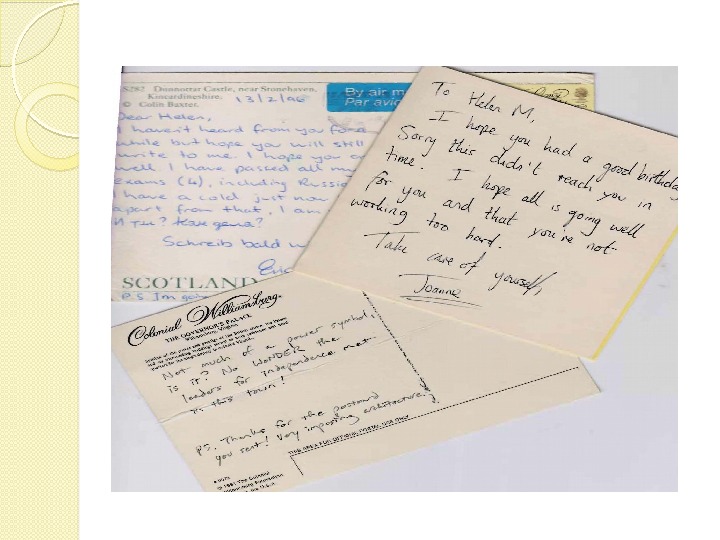 S282 Dunnottar Castle, near Stonehaven,
Kincardineshire.
© Colin Baxter.
13/2/96
Dear Helen,
I haven't heard from you for a
while but hope you will still
write to me. I hope you are
well. I have passed all my
exams (4), including Russia
I have a cold just now
apart from that, I am
Schreib bald
SCOTLAND
P.S. I'm
By air m
Par avio
To Helen M,
I hope you had a good birthday
Sorry this didn't reach you in
time. I hope all is going well
for you and that you're not
working too hard.
Take care of yourself,
Joanne
Colonial Williamsburg
THE GOVERNOR'S PALACE
Williamsburg, Virginia
Not much of a power symbol,
is it? No WONDER the
leaders for independence met
in this town!
PS. Thanks for the postcard
you sent! Very imposing architecture!
THIS AREA FOR OFFICIAL POSTAL USE ONLY
© 1991 The Colonial
Williamsburg Foundation